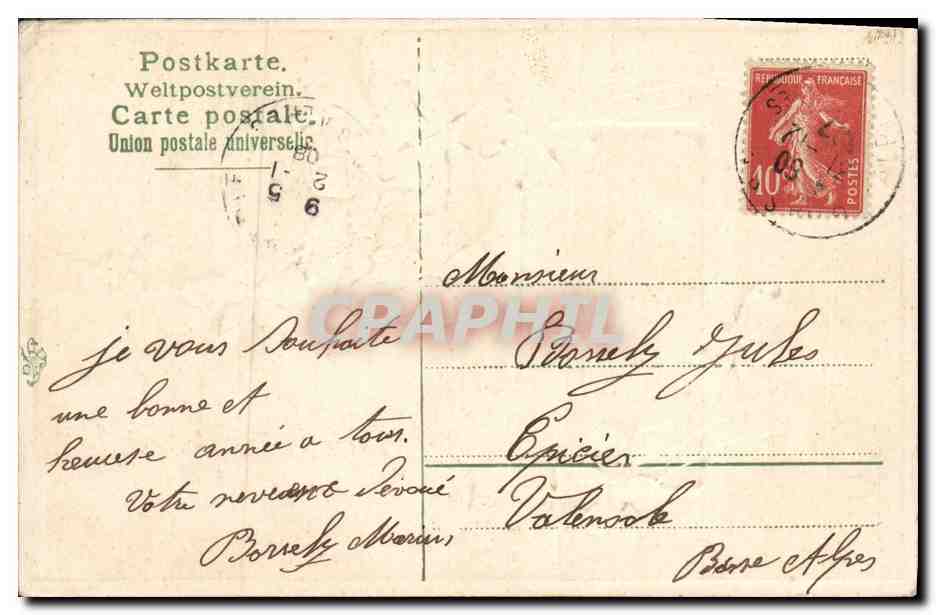 Postkarte.
Weltpostverein.
Carte postale.
Union postale universelle.
REPUBLIQUE FRANÇAISE
10
POSTES
2 09
9
5 -1
2 08
CRAPHIL
Monsieur
Borrely Jules
Epicier
Valensole
Basse Alpes
je vous souhaite
une bonne et
heureuse année a tous.
Votre neveu dévoué
Borrely Marius